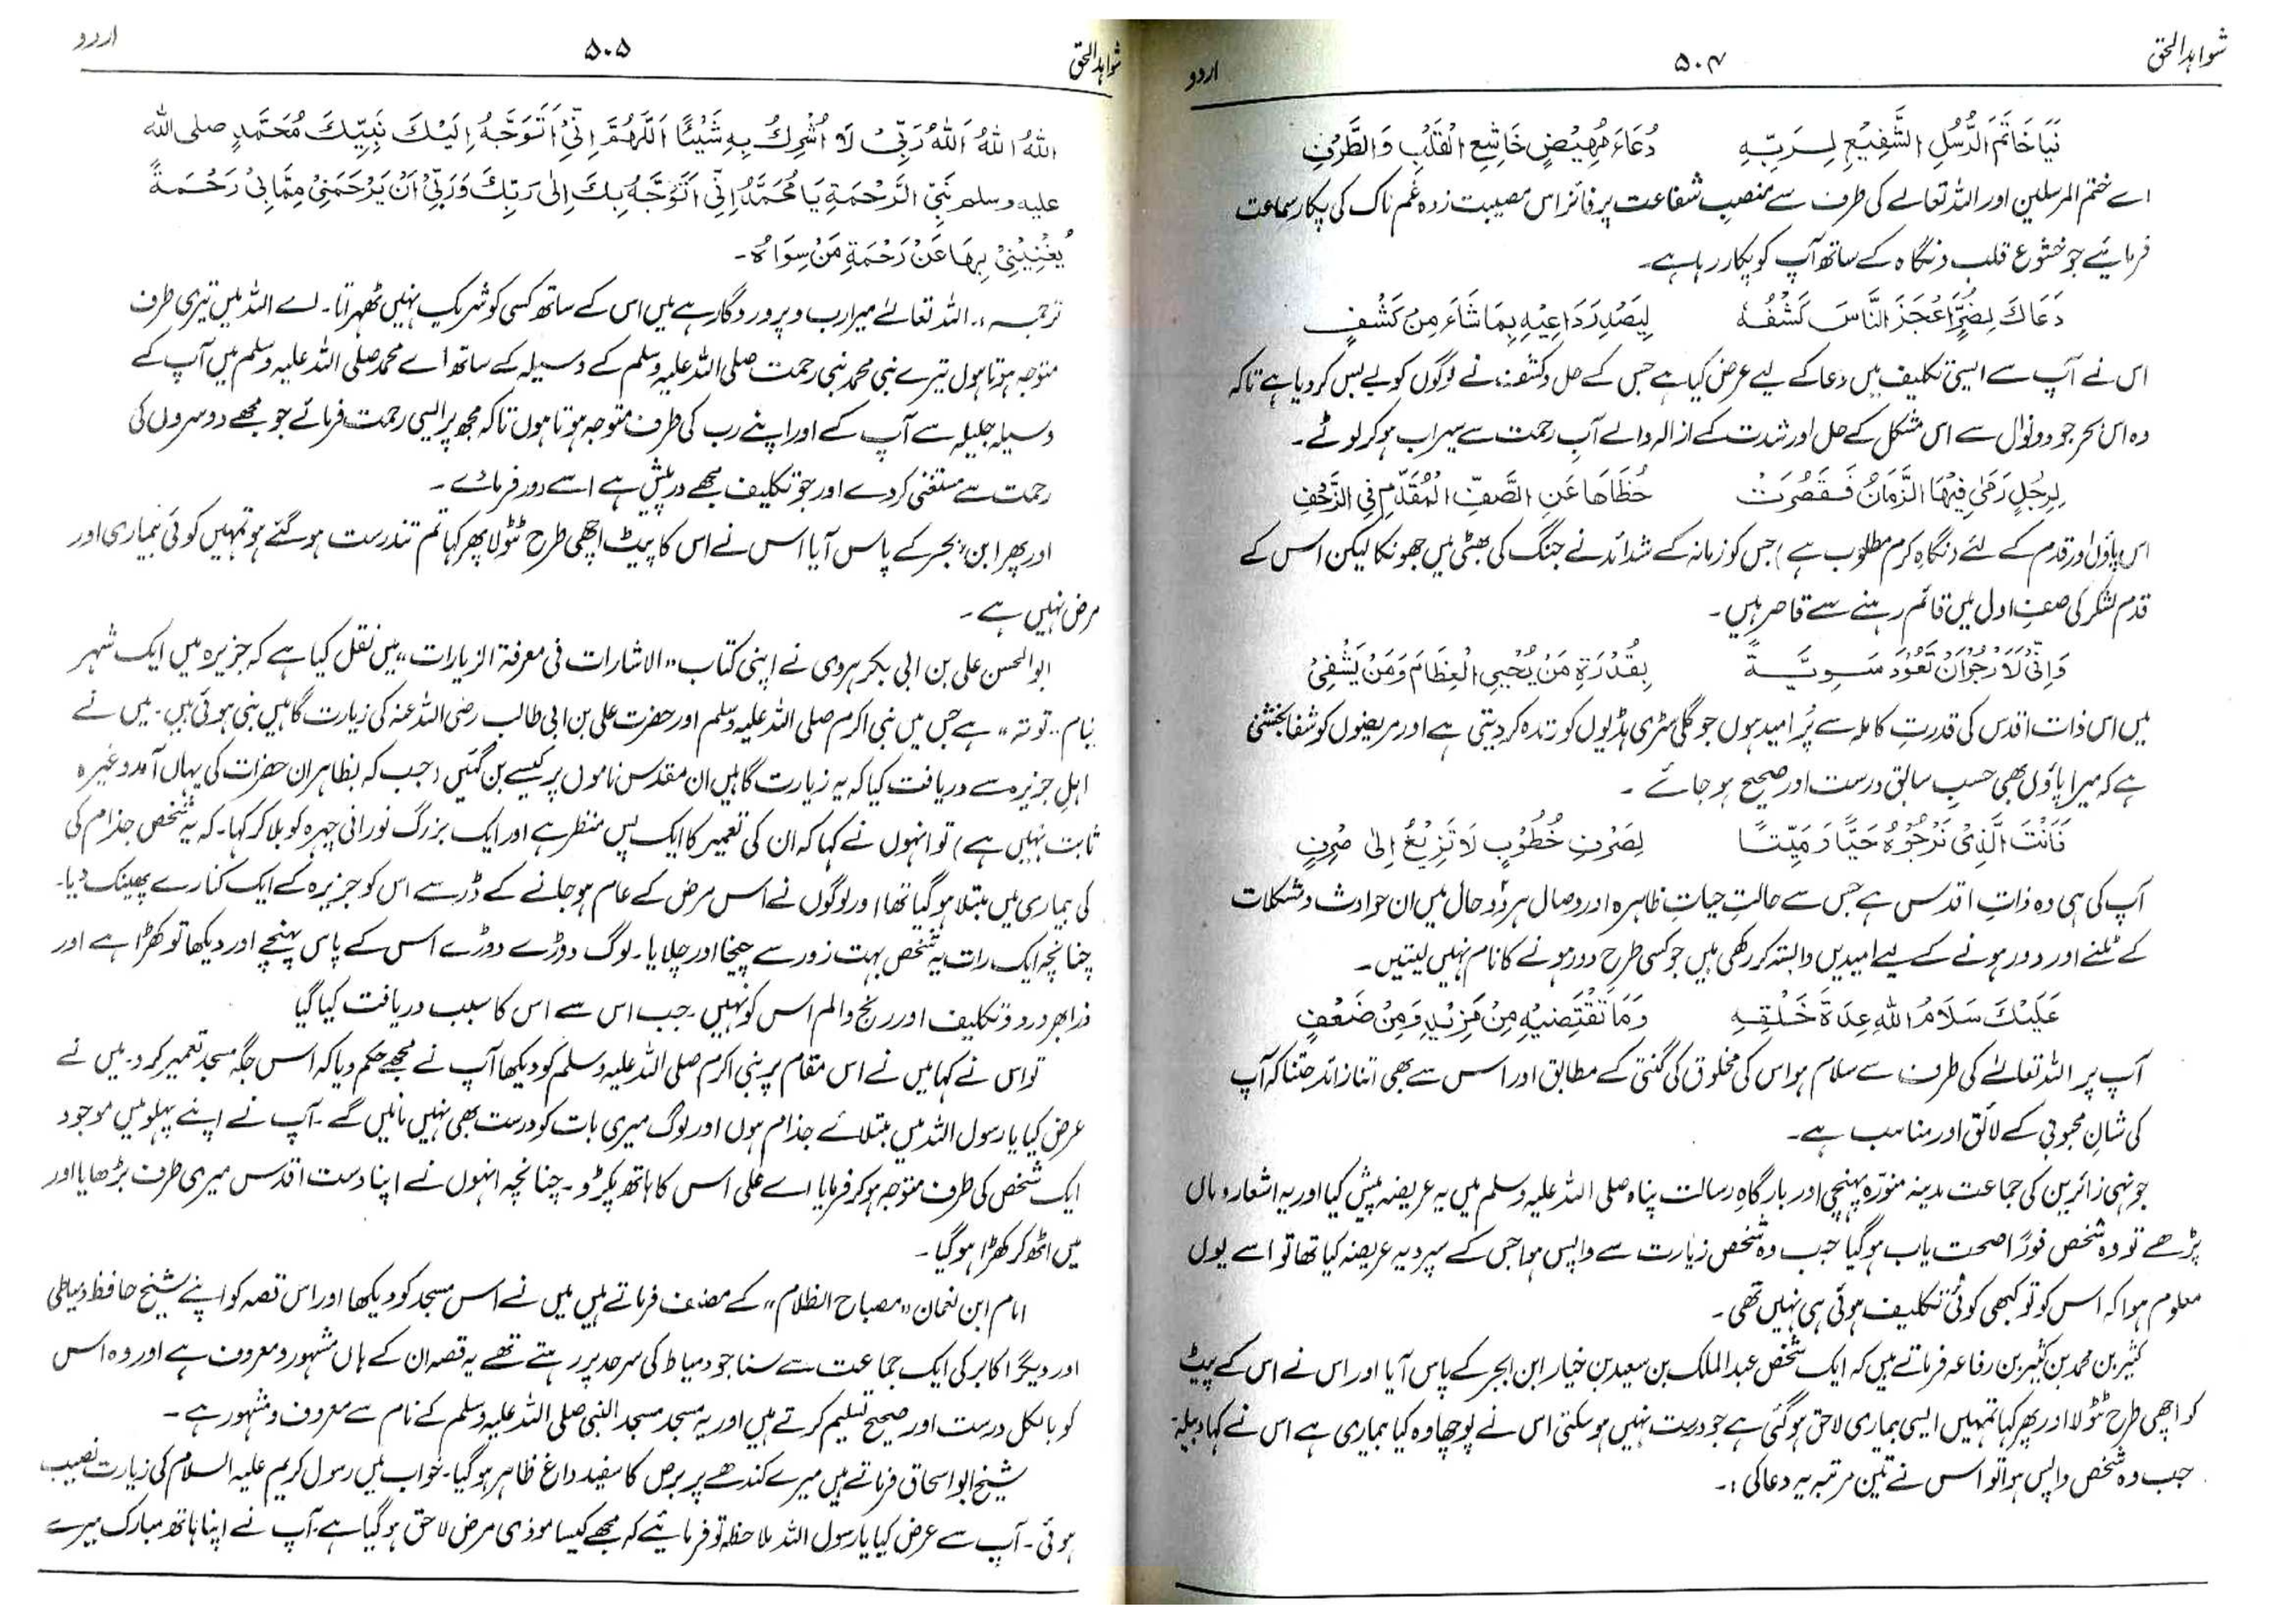 شواہد الحق
۵۰۴
اردو
فَيَا خَاتَمَ الرُّسُلِ الشَّفِيْعِ لِرَبِّهٖ دُعَاءَ مَهِيْضٍ خَاشِعِ الْقَلْبِ وَالطَّرْفِ
اے ختم المرسلین اور اللہ تعالےٰ کی طرف سے منصبِ شفاعت پر فائز اس مصیبت زدہ غم ناک کی پکار سماعت
فرمائیے جو خشوع قلب و نگاہ کے ساتھ آپ کو پکار رہا ہے۔
دَعَاكَ لِضُرٍّ اَعْجَزَ النَّاسَ كَشْفُهٗ لِيَصْدِرَ دَاعِيْهِ بِمَا شَاءَ مِنْ كَشْفٍ
اس نے آپ سے ایسی تکلیف میں دعا کے لیے عرض کیا ہے جس کے حل و کشف نے لوگوں کو بے بس کر دیا ہے تاکہ
وہ اس بحر جود و نوال سے اس مشکل کے حل اور شدت کے ازالہ والے آبِ رحمت سے سیراب ہو کر لوٹے۔
لِرِجْلٍ رَمٰى فِيْهَا الزَّمَانُ فَقَصُرَتْ خُطَاهَا عَنِ الصَّفِّ الْمُقَدَّمِ فِي الزَّحْفِ
اس پاؤں اور قدم کے لئے (نگاہِ کرم مطلوب ہے) جس کو زمانہ کے شدائد نے جنگ کی بھٹی میں جھونکا لیکن اس کے
قدم لشکر کی صفِ اول میں قائم رہنے سے قاصر ہیں۔
وَاِنِّيْ لَاَرْجُوْ اَنْ تَعُوْدَ سَوِيَّةً بِقُدْرَةِ مَنْ يُحْيِي الْعِظَامَ وَمَنْ يَشْفِيْ
میں اس ذات اقدس کی قدرتِ کاملہ سے پُر امید ہوں جو گلی سٹری ہڈیوں کو زندہ کر دیتی ہے اور مریضوں کو شفا بخشتی
ہے کہ میرا پاؤں بھی حسبِ سابق درست اور صحیح ہو جائے ۔
فَاَنْتَ الَّذِيْ نَرْجُوْهُ حَيًّا وَمَيِّتًا لِصَرْفِ خُطُوْبٍ لَا تَزِيْغُ اِلٰى صِرْفٍ
آپ کی ہی وہ ذاتِ اقدس ہے جس سے حالتِ حیاتِ ظاہرہ اور وصال ہر دو حال میں ان حوادث و مشکلات
کے ٹلنے اور دور ہونے کے لیے امیدیں وابستہ کر رکھی ہیں جو کسی طرح دور ہونے کا نام نہیں لیتیں۔
عَلَيْكَ سَلَامُ اللهِ عِدَةَ خَلْقِهٖ وَمَا تَقْتَضِيْهِ مِنْ مَزِيْدٍ وَمِنْ ضَعْفٍ
آپ پر اللہ تعالےٰ کی طرف سے سلام ہو اس کی مخلوق کی گنتی کے مطابق اور اس سے بھی اتنا زائد جتنا کہ آپ
کی شانِ محبوبی کے لائق اور مناسب ہے۔
جونہی زائرین کی جماعت مدینہ منورّہ پہنچی اور بارگاہِ رسالت پناہ صلی اللہ علیہ وسلم میں یہ عریضہ پیش کیا اور یہ اشعار وہاں
پڑھے تو وہ شخص فورًا صحت یاب ہو گیا جب وہ شخص زیارت سے واپس ہوا جس کے سپرد یہ عریضہ کیا تھا تو اسے یوں
معلوم ہوا کہ اس کو تو کبھی کوئی تکلیف ہوئی ہی نہیں تھی۔
کثیر بن محمد بن کثیر بن رفاعہ فرماتے ہیں کہ ایک شخص عبد الملک بن سعید بن خیار ابن ابجر کے پاس آیا اور اس نے اس کے پیٹ
کو اچھی طرح ٹٹولا اور پھر کہا تمہیں ایسی بیماری لاحق ہو گئی ہے جو درست نہیں ہو سکتی اس نے پوچھا وہ کیا بیماری ہے اس نے کہا دبیلۃ
جب وہ شخص واپس ہوا تو اس نے تین مرتبہ یہ دعا کی :۔
شواہد الحق
۵۰۵
اردو
اَللّٰهُ اَللّٰهُ اَللّٰهُ رَبِّيْ لَا اُشْرِكُ بِهٖ شَيْئًا اَللّٰهُمَّ اِنِّيْ اَتَوَجَّهُ اِلَيْكَ نَبِيِّكَ مُحَمَّدٍ صلى الله
عليه وسلم نَبِيِّ الرَّحْمَةِ يَا مُحَمَّدُ اِنِّيْ اَتَوَجَّهُ بِكَ اِلٰى رَبِّكَ وَرَبِّيْ اَنْ يَّرْحَمَنِيْ مِمَّا بِيْ رَحْمَةً
يُغْنِيْنِيْ بِهَا عَنْ رَحْمَةِ مَنْ سِوَاهُ ۔
ترجمہ :۔ اللہ تعالےٰ میرا رب و پروردگار ہے میں اس کے ساتھ کسی کو شریک نہیں ٹھہراتا۔ اے اللہ میں تیری طرف
متوجہ ہوتا ہوں تیرے نبی محمد نبی رحمت صلی اللہ علیہ وسلم کے وسیلہ کے ساتھ اے محمد صلی اللہ علیہ وسلم میں آپ کے
وسیلہ جلیلہ سے آپ کے اور اپنے رب کی طرف متوجہ ہوتا ہوں تاکہ مجھ پر ایسی رحمت فرمائے جو مجھے دوسروں کی
رحمت سے مستغنی کر دے اور جو تکلیف مجھے درپیش ہے اسے دور فرمائے ۔
اور پھر ابن ابجر کے پاس آیا اس نے اس کا پیٹ اچھی طرح ٹٹولا پھر کہا تم تندرست ہو گئے ہو تمہیں کوئی بیماری اور
مرض نہیں ہے ۔
ابوالحسن علی بن ابی بکر ہروی نے اپنی کتاب ،،الاشارات فی معرفۃ الزیارات،، میں نقل کیا ہے کہ جزیرہ میں ایک شہر
بنام ،،تونہ،، ہے جس میں نبی اکرم صلی اللہ علیہ وسلم اور حضرت علی بن ابی طالب رضی اللہ عنہ کی زیارت گاہیں بنی ہوئی ہیں۔ میں نے
اہلِ جزیرہ سے دریافت کیا کہ یہ زیارت گاہیں ان مقدس ناموں پر کیسے بن گئیں (جب کہ بظاہر ان حضرات کی یہاں آمد وغیرہ
ثابت نہیں ہے) تو انہوں نے کہا کہ ان کی تعمیر کا ایک پس منظر ہے اور ایک بزرگ نورانی چہرہ کو بلا کر کہا۔ کہ یہ شخص جذام کی
کی بیماری میں مبتلا ہو گیا تھا اور لوگوں نے اس مرض کے عام ہو جانے کے ڈر سے اس کو جزیرہ کے ایک کنارے پھینک دیا۔
چنانچہ ایک رات یہ شخص بہت زور سے چیخا اور چلایا۔ لوگ دوڑے دوڑے اس کے پاس پہنچے اور دیکھا تو کھڑا ہے اور
ذرا بھر درد و تکلیف اور رنج والم اس کو نہیں۔ جب اس سے اس کا سبب دریافت کیا گیا
تو اس نے کہا میں نے اس مقام پر نبی اکرم صلی اللہ علیہ وسلم کو دیکھا آپ نے مجھے حکم دیا کہ اس جگہ مسجد تعمیر کرو۔ میں نے
عرض کیا یا رسول اللہ میں مبتلائے جذام ہوں اور لوگ میری بات کو درست بھی نہیں مانیں گے۔ آپ نے اپنے پہلو میں موجود
ایک شخص کی طرف متوجہ ہو کر فرمایا اے علی اس کا ہاتھ پکڑو۔ چنانچہ انہوں نے اپنا دست اقدس میری طرف بڑھایا اور
میں اٹھ کر کھڑا ہو گیا ۔
امام ابن نعمان ،،مصباح الظلام،، کے مصنف فرماتے ہیں میں نے اس مسجد کو دیکھا اور اس قصہ کو اپنے شیخ حافظ دمیاطی
اور دیگر اکابر کی ایک جماعت سے سنا جو دمیاط کی سرحد پر رہتے تھے یہ قصہ ان کے ہاں مشہور و معروف ہے اور وہ اس
کو بالکل درست اور صحیح تسلیم کرتے ہیں اور یہ مسجد مسجد النبی صلی اللہ علیہ وسلم کے نام سے معروف و مشہور ہے ۔
شیخ ابو اسحاق فرماتے ہیں میرے کندھے پر برص کا سفید داغ ظاہر ہو گیا۔ خواب میں رسول کریم علیہ السلام کی زیارت نصیب
ہوئی۔ آپ سے عرض کیا یا رسول اللہ ملاحظہ تو فرمائیے کہ مجھے کیسا موذی مرض لاحق ہو گیا ہے۔ آپ نے اپنا ہاتھ مبارک میرے